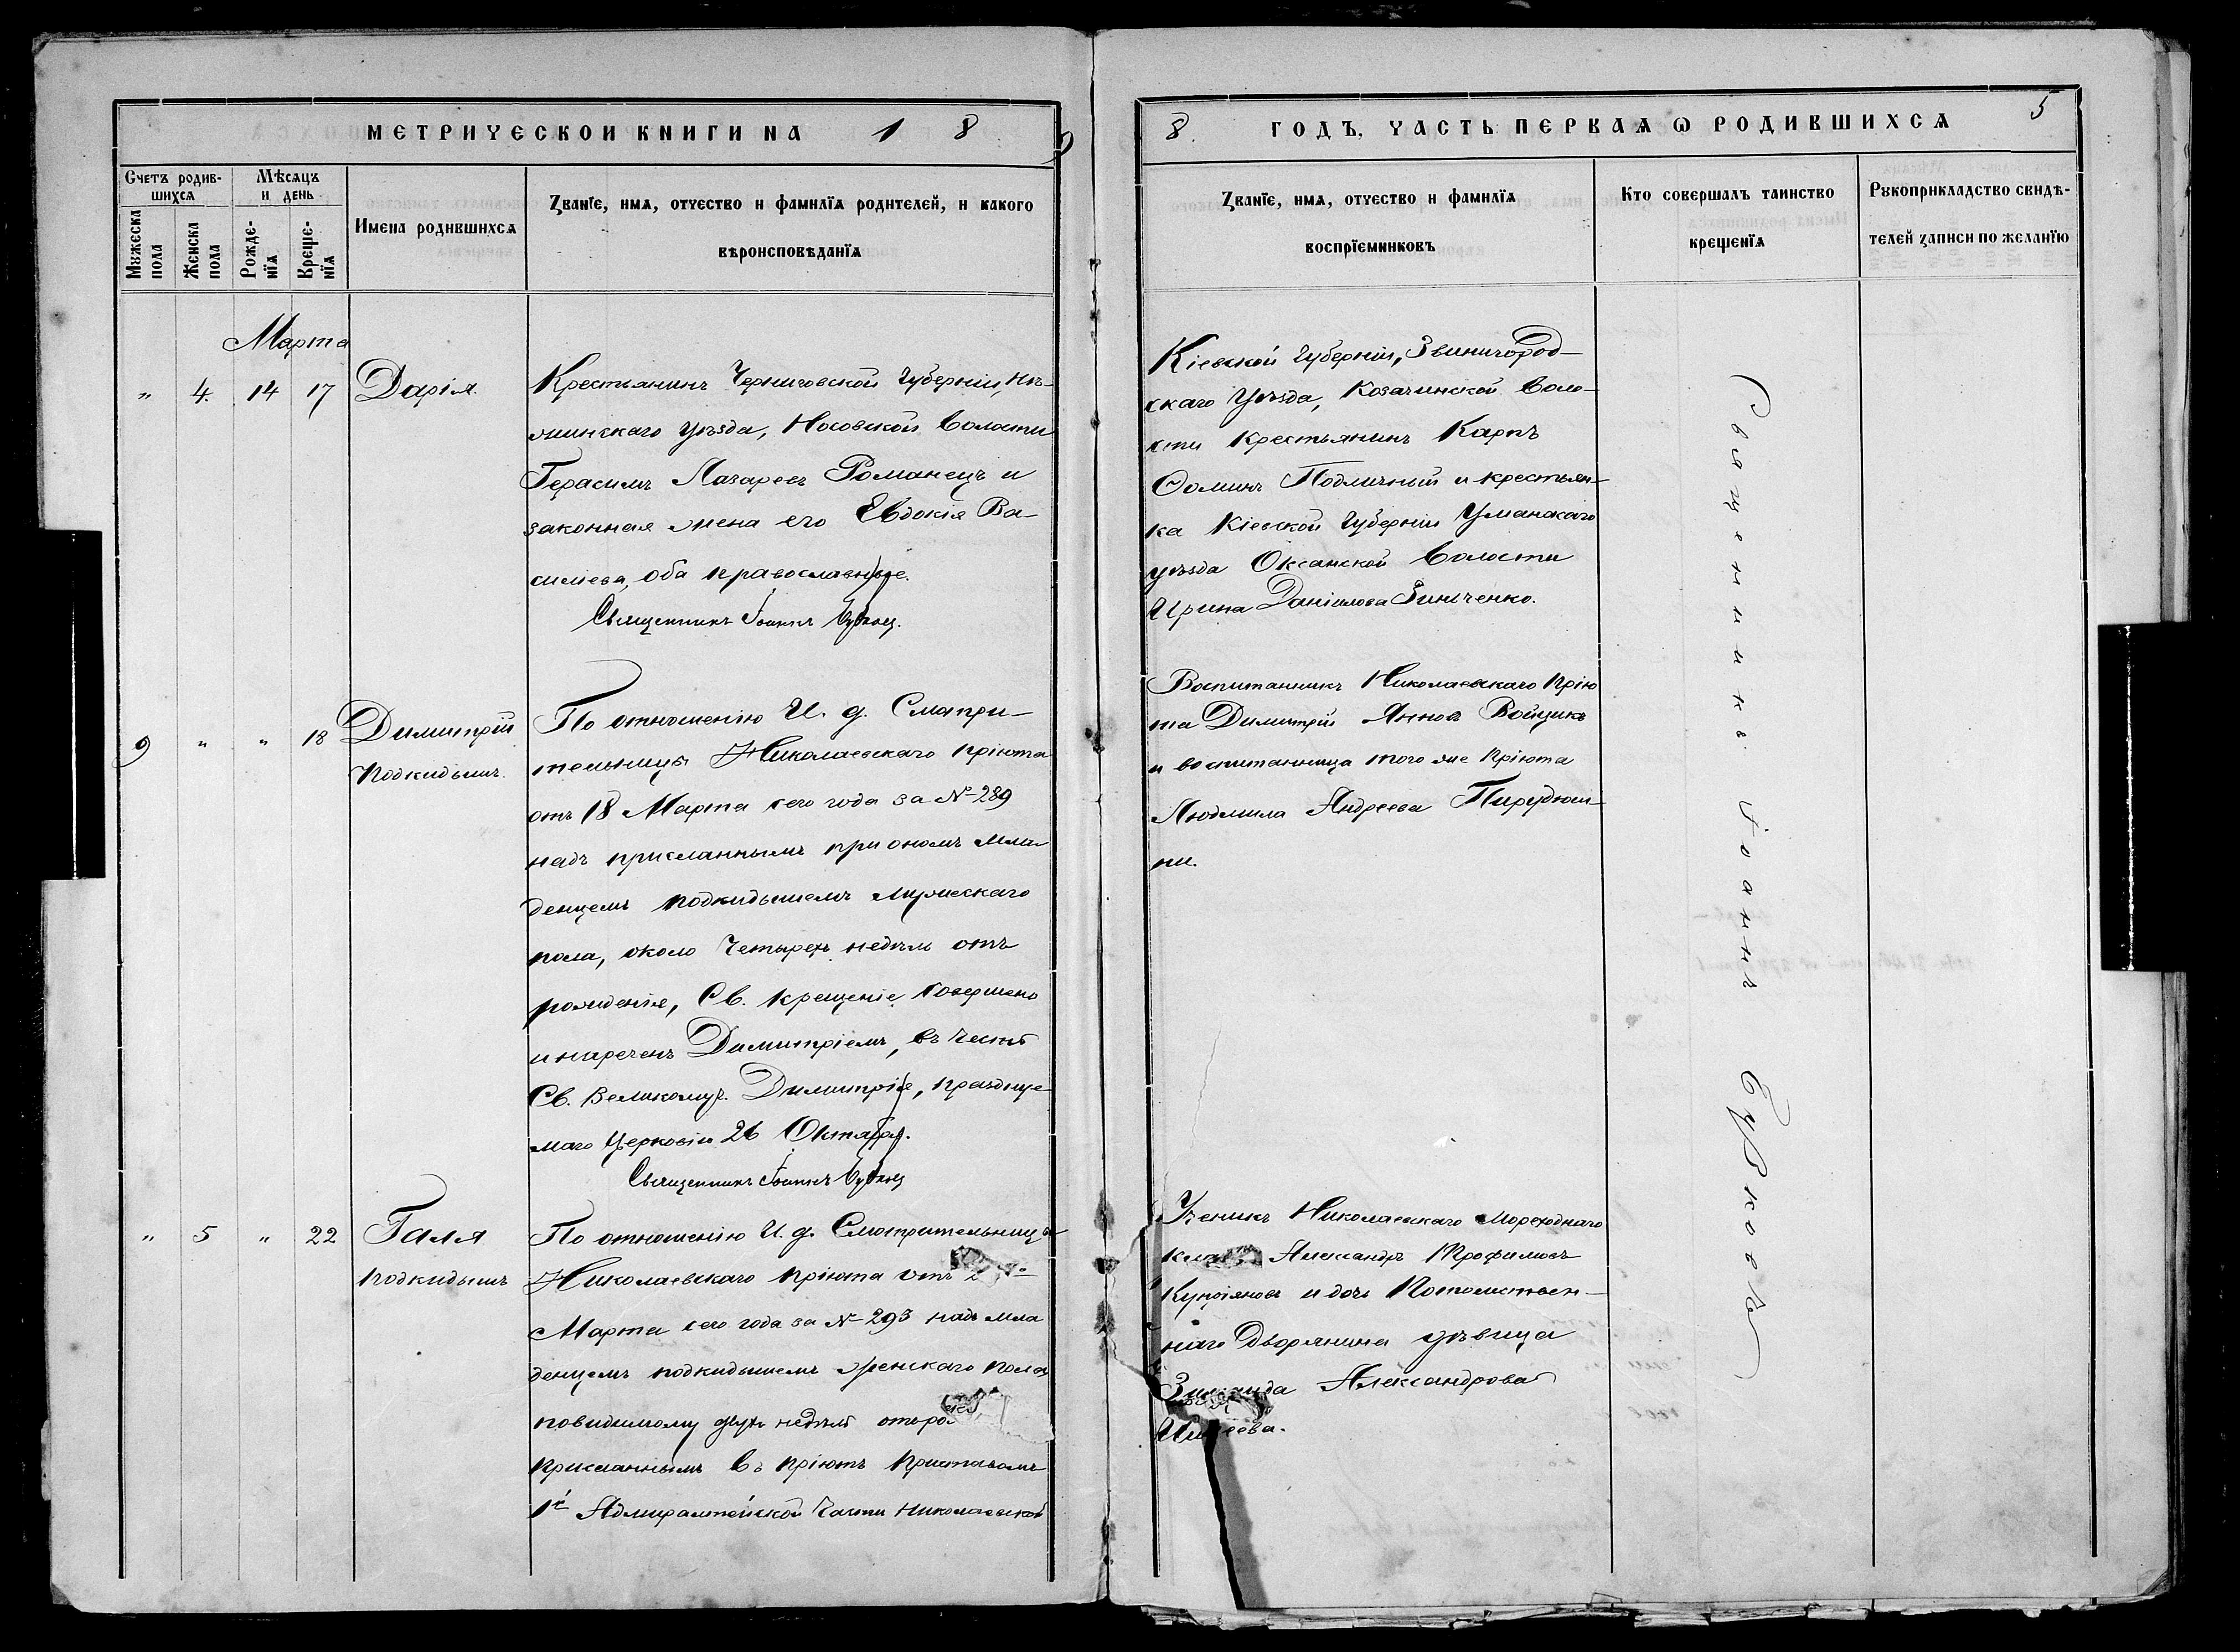 МЕТРИЧЕСКОЙ КНИГИ НА 1 8
8. ГОДЪ, ЧАСТЬ ПЕРВАѦ Ѡ РОДИВШИХСѦ 5
Счетъ родив-
шихсѧ
Мꙋжеска пола
Женска пола
Мѣсѧцъ
и день
Рожде-
нїѧ
Креще-
нїѧ
Имена родившихсѧ
Званїе, имѧ, отчество и фамилїѧ родителей, и какого
вѣроисповѣданїѧ
Званїе, имѧ, отчество и фамилїѧ
воспрїемниковъ
Кто совершалъ таинство
крещенїѧ
Рꙋкоприкладство свидѣ-
телей записи по желанїю
Марта
" 4. 14 17 Дарія.
Крестьянинъ Черниговской Губерніи, Нѣ-
жинскаго уѣзда, Носовской Волости
Герасимъ Лазаревъ Романецъ и
законная жена его Евдокія Ва-
силіева, оба православные.
Священникъ Іоаннъ
Кіевской Губерніи, Звинигород-
скаго Уѣзда, Козачинской Воло-
сти Крестьянинъ Карпъ
Ѳоминъ Подличный и крестьян-
ка Кіевской Губерніи Уманскаго
уѣзда Оксанской Волости
Ирина Даніилова Зинченко.
9 " " 18 Димитрій
Подкидышъ.
По отношенію И. д. Смотри-
тельницы Николаевскаго пріюта
отъ 18 Марта сего года за № 289
надъ присланнымъ при ономъ мла-
денцемъ подкидышемъ мужескаго
пола, около четырехъ недѣль отъ
рожденія, Св. крещеніе совершено
и нареченъ Димитріемъ, въ честь
Св. Великомуч. Димитрія, празднуе-
маго Церковію 26 Октября.
Священникъ Іоаннъ
Воспитанникъ Николаевскаго Прію
та Димитрій Янновъ Войцикъ
и воспитанница того же Пріюта
Людмила Андреева
ни.
" 5 " 22 Галя
подкидышъ
По отношенію И. д. Смотрительницы
Николаевскаго пріюта отъ
Марта сего года за № 293 надъ мла
денцемъ подкидышемъ женскаго пола
повидимому двухъ недѣль отъ
присланнымъ въ пріютъ Приставомъ
1й Адмиралтейской Части Николаевской
Ученикъ Николаевскаго Мореходнаго
Александръ Трофимовъ
Купріяновъ и дочь Потомствен-
наго Дворянина дѣвица
Зинаида Александрова
Священникъ Іоаннъ